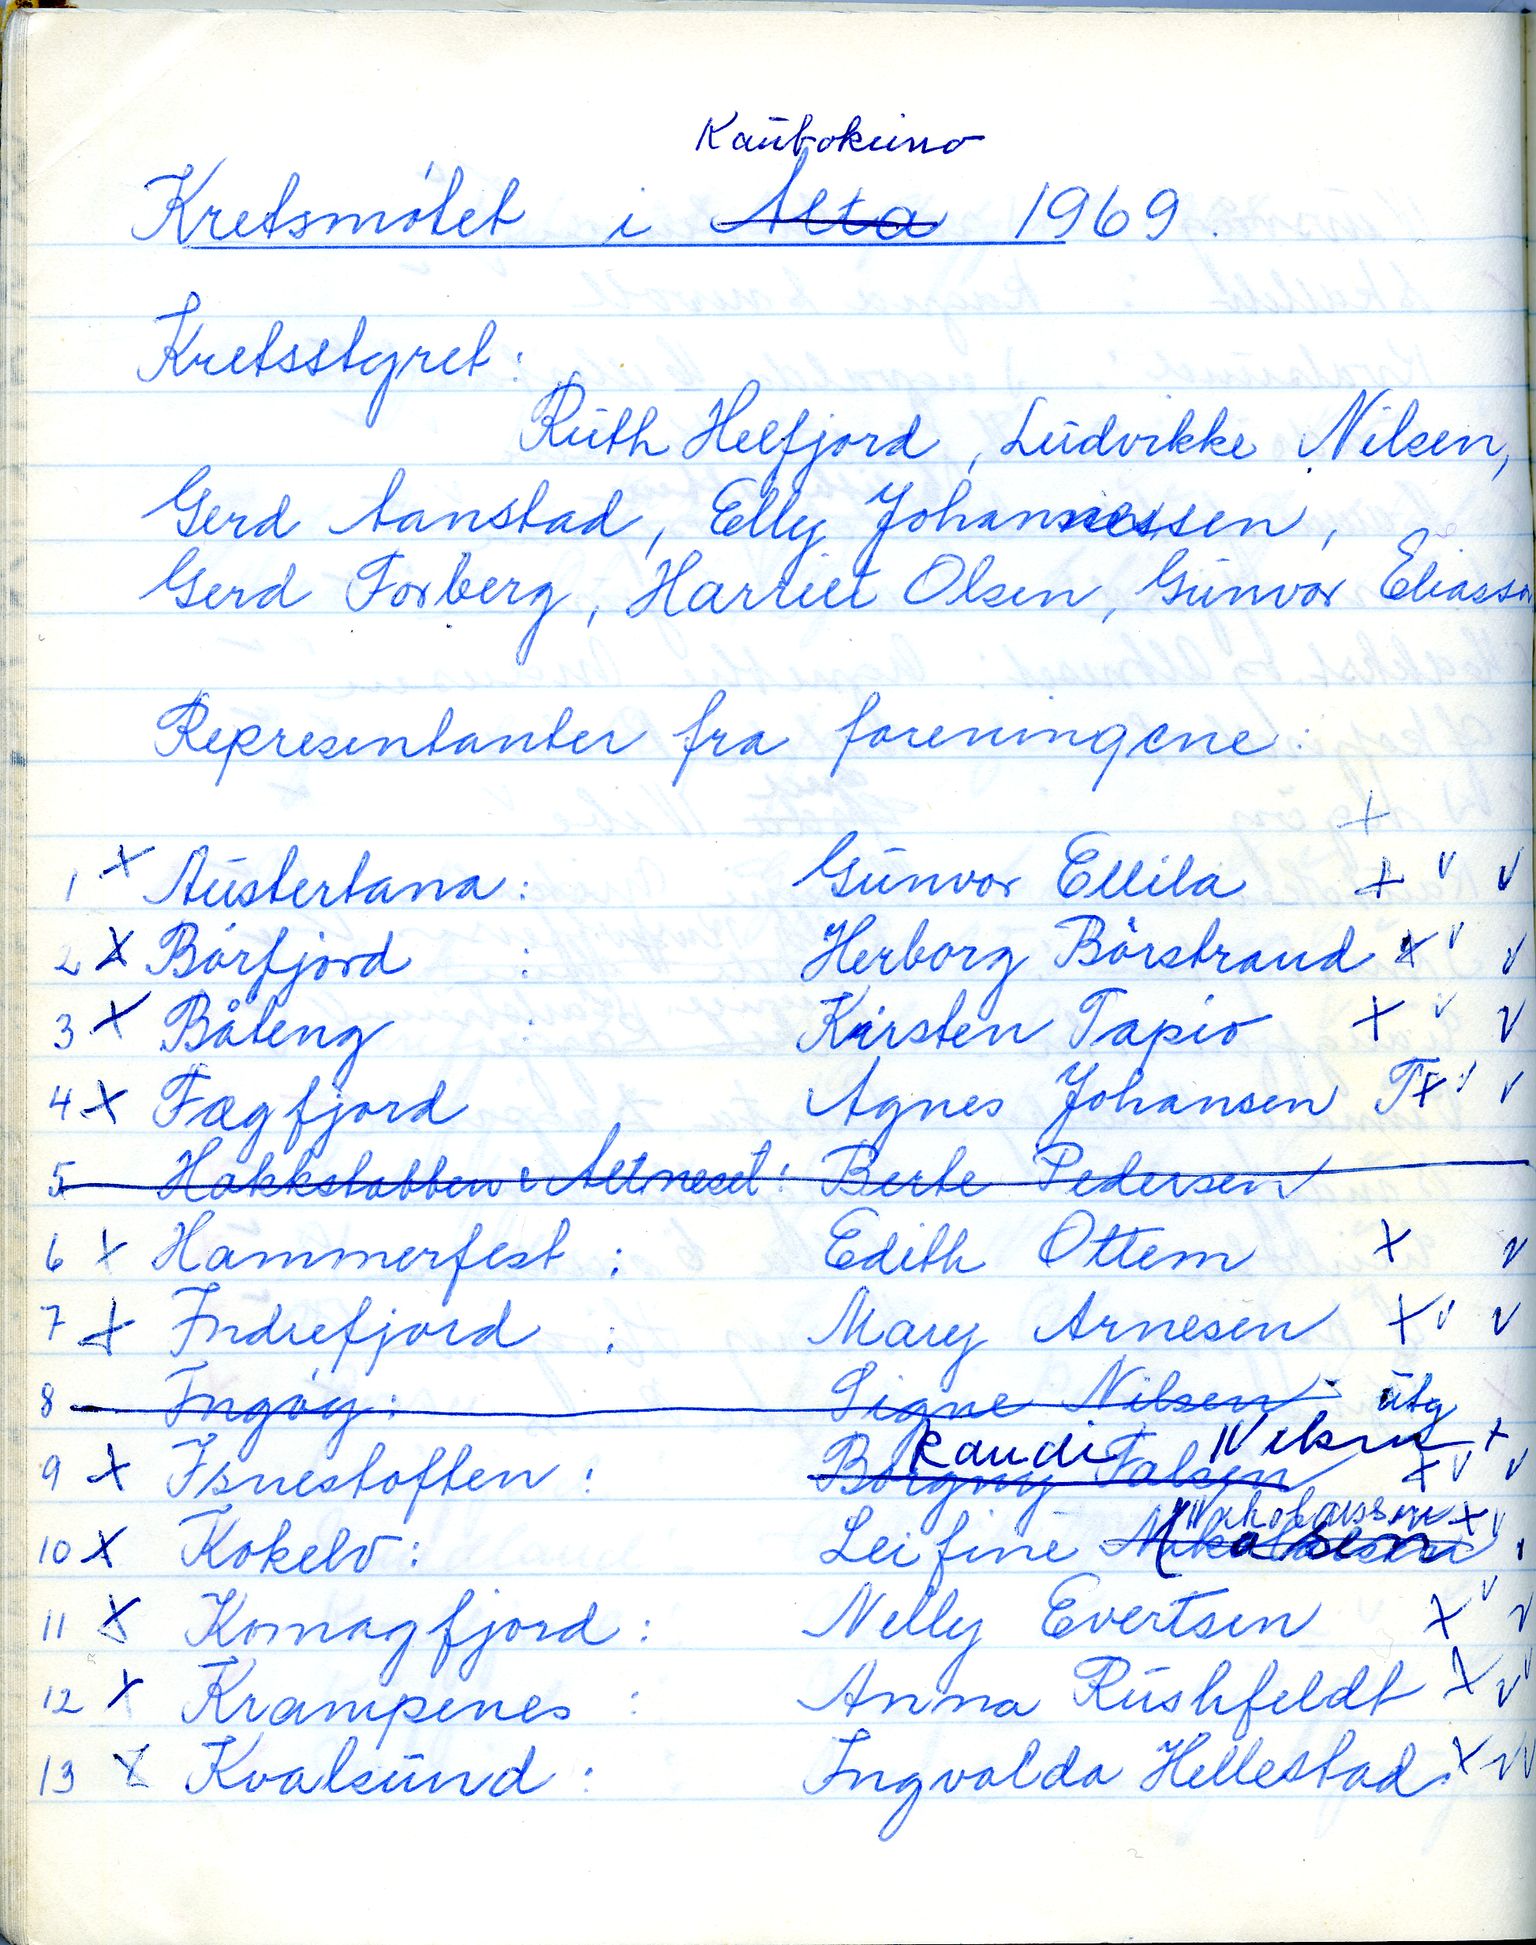 Kautokeino
Kretsmøtet i Alta 1969.
Kretsstyret:
Ruth Helfjord, Ludvikke Nilsen,
Gerd Aanstad, Elly Johannessen,
Gerd Forberg, Harriet Olsen, Gunvor Eliassen
Representanter fra foreningene:
1 x Austertana: Gunvor Ellila x v v
2 x Børfjord : Herborg Børstrand x v v
3 x Båteng : Kirsten Tapio x v v
4 x Fægfjord Agnes Johansen T x v v
5 Hakkstabben & Altneset: Berte Pedersen
6 x Hammerfest : Edith Ottem x v
7 x Indrefjord : Mary Arnesen x v v
8 Ingøy: Signe Nilsen utg
Randi Nilsen x
9 x Isnestoften : Borgny Falsen x v v
10 x Kokelv: Leifine x v
11 x Komagfjord : Nelly Evertsen x v v
12 x Krampenes : Anna Rushfeldt x v v
13 x Kvalsund : Ingvalda Hellestad x v v